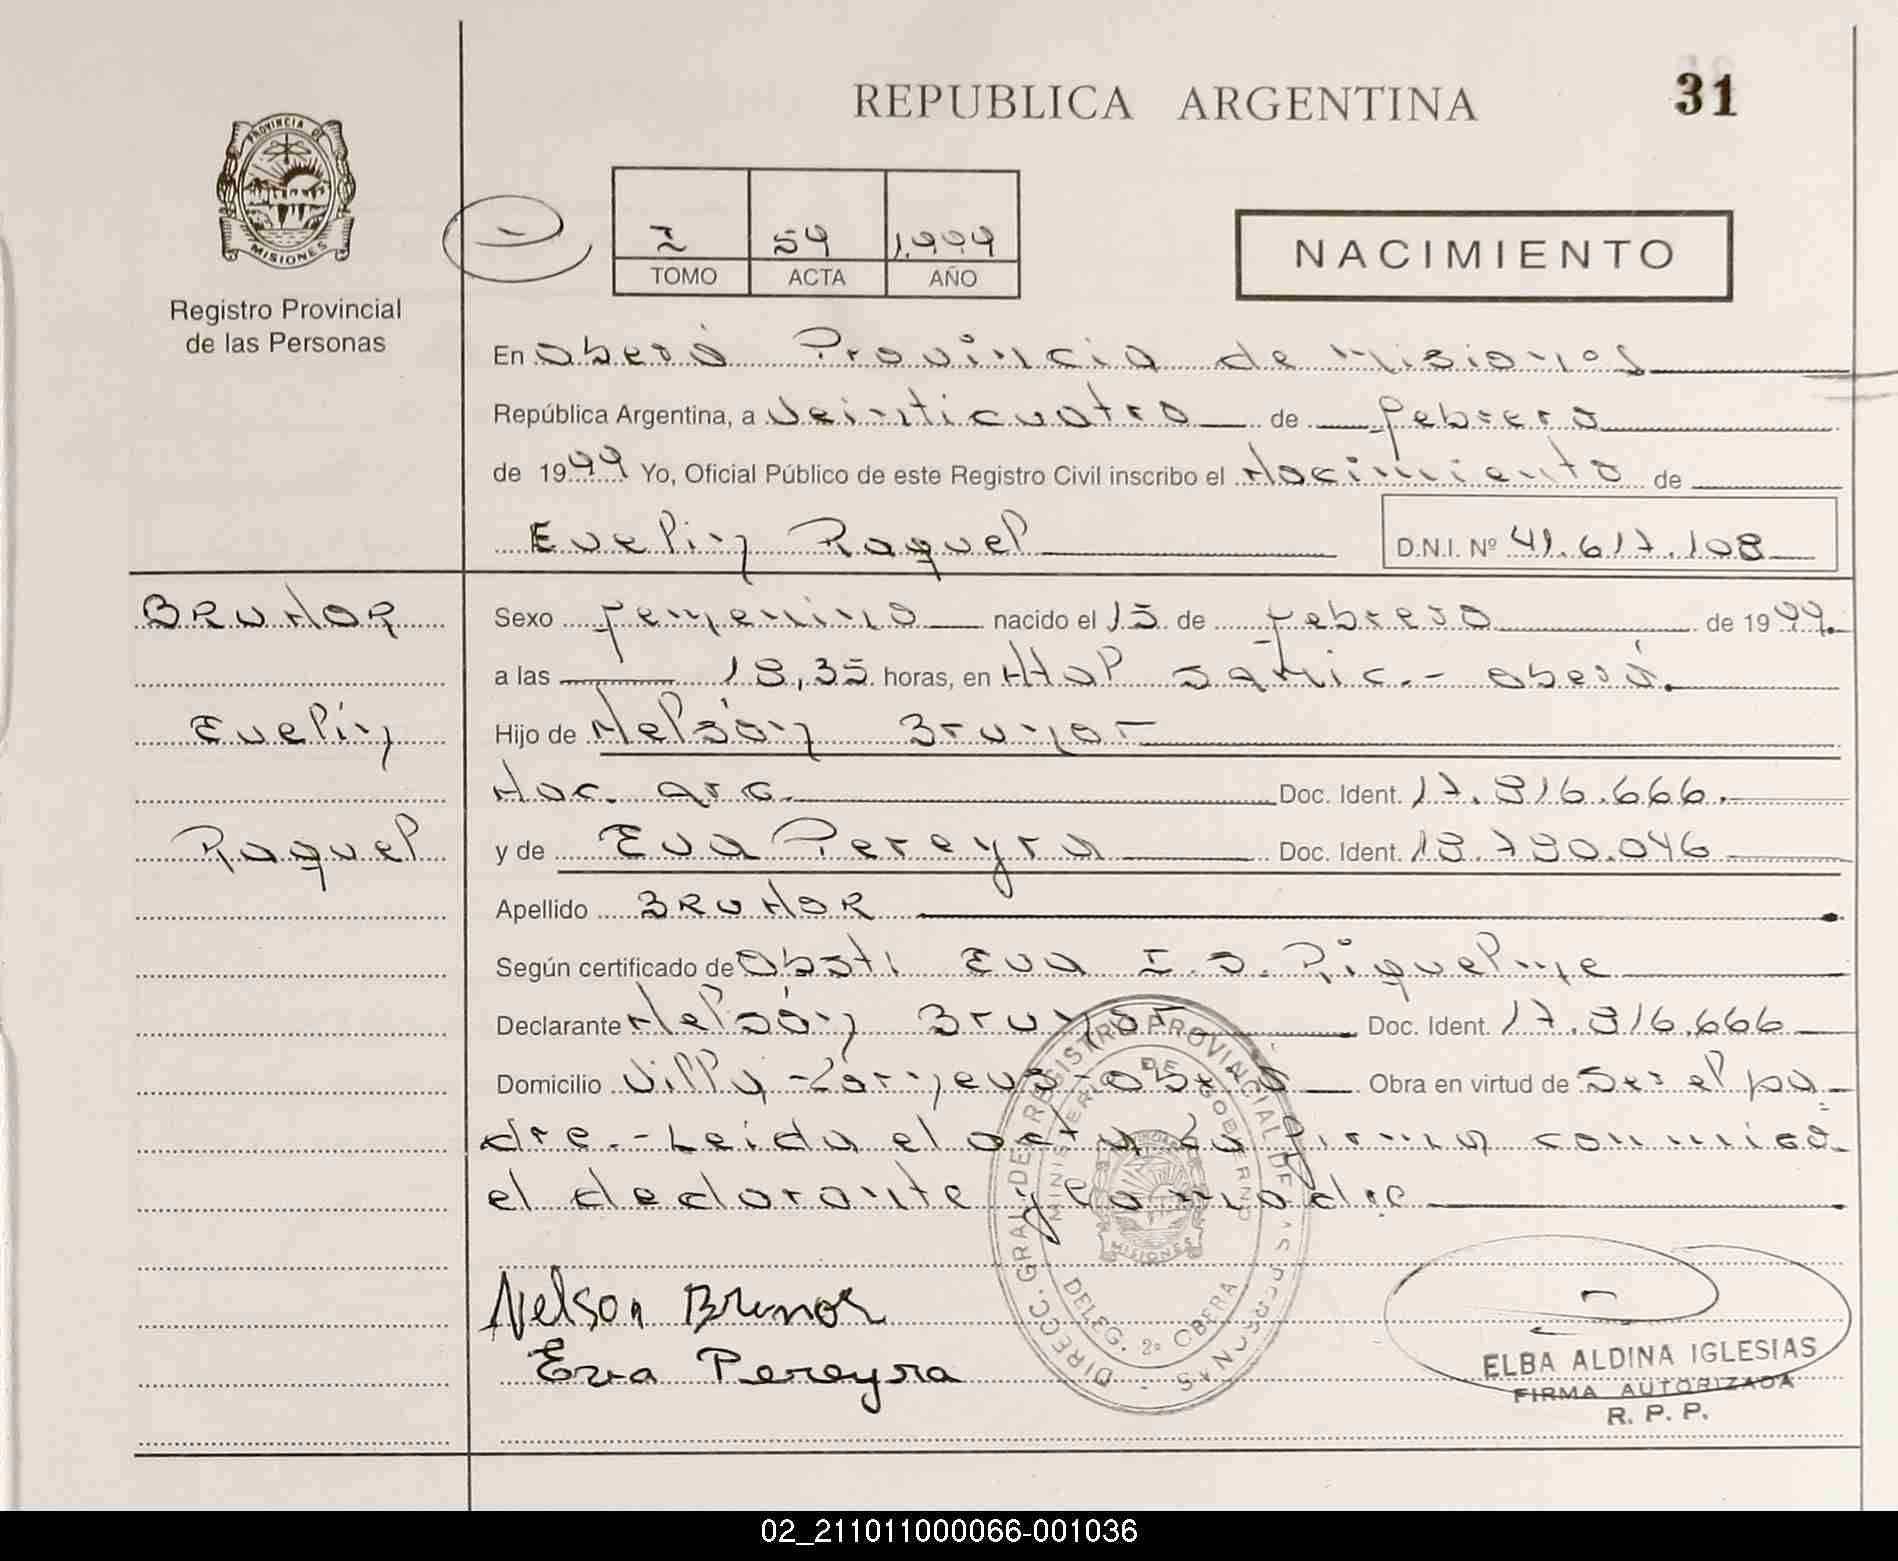 REPUBLICA ARGENTINA
31
PROVINCIA DE
MISIONES
Registro Provincial
de las Personas
I 54 1.999
TOMO ACTA AÑO
NACIMIENTO
En Oberá Provincia de Misiones
República Argentina, a veinticuatro de febrero
de 1999 Yo, Oficial Público de este Registro Civil inscribo el Nacimiento de
Evelin Raquel D.N.I. Nº 41.617.108
BRUNOR
Evelin
Raquel
Sexo femenino nacido el 15 de febrero de 1999.
a las 18,35 horas, en Hosp SAMIC.- Oberá.
Hijo de Nelsón Brunor
Nac. arg. Doc. Ident. 17.816.666.
y de Eva Pereyra Doc. Ident. 18.780.046
Apellido BRUNOR
Según certificado de Obst. Eva I. D. Riquelme
Declarante Nelsón Brunor Doc. Ident. 17.816.666
Domicilio Villa Oberá Obra en virtud de Ser el pa-
dre.- Leida el acta la firma conmigo
el declarante y la madre
Nelson Brunor
Eva Pereyra
DIRECC. GRAL. DE REGISTRO PROVINCIAL DE LAS PERSONAS
MINISTERIO DE GOBIERNO
MISIONES
DELEG. 2ª OBERA
ELBA ALDINA IGLESIAS
FIRMA AUTORIZADA
R. P. P.
02_211011000066-001036